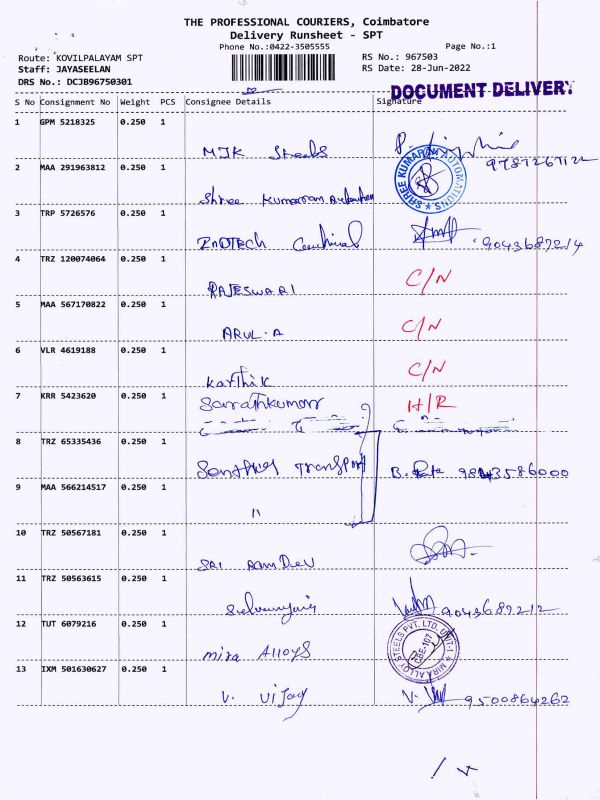 THE PROFESSIONAL COURIERS, Coimbatore
Delivery Runsheet - SPT
Phone No.:0422-3505555
Page No.:1
Route: KOVILPALAYAM SPT
RS No.: 967503
Staff: JAYASEELAN
RS Date: 28-Jun-2022
DRS No.: DCJB96750301
DOCUMENT DELIVERY
S No Consignment No Weight PCS Consignee Details Signature
1 GPM 5218325 0.250 1
MJK Steels
2 MAA 291963812 0.250 1
9787267122
Shree Kumaran
SHREE KUMARAN AUTOMATIONS
3 TRP 5726576 0.250 1
9043689214
4 TRZ 120074064 0.250 1
RAJESWARI C/N
5 MAA 567170822 0.250 1
ARUL.A C/N
6 VLR 4619188 0.250 1
Karthik C/N
7 KRR 5423620 0.250 1
Sarathkumar H/R
8 TRZ 65335436 0.250 1
Transport B.
9 MAA 566214517 0.250 1
"
10 TRZ 50567181 0.250 1
SRI RAM DEV
11 TRZ 50563615 0.250 1
9043689212
12 TUT 6079216 0.250 1
Mira Alloys
MIRA ALLOY STEELS PVT. LTD. UNIT-1
CBE-107
13 IXM 501630627 0.250 1
V. Vijay 9500864262